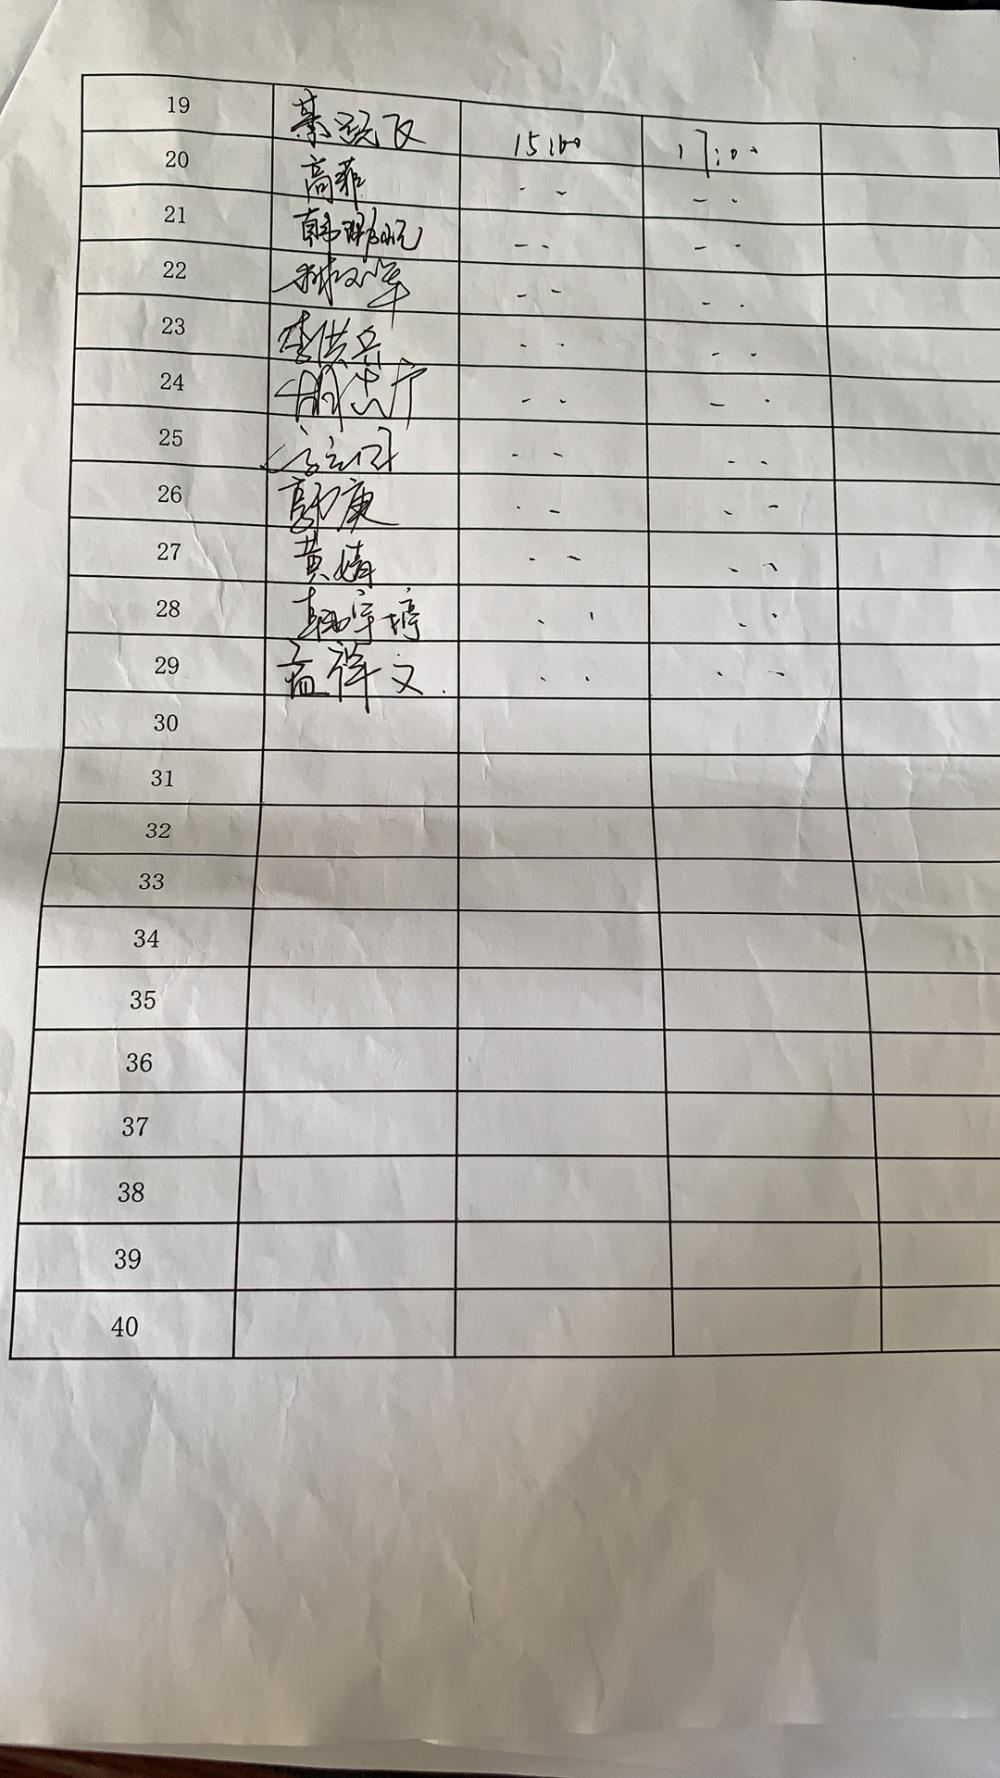 19 15:00 17:00
20 高菲
21 韩
22
23 李洪兵
24
25
26 郭庚
27 黄婧
28 韩宇婷
29 孟祥文
30
31
32
33
34
35
36
37
38
39
40